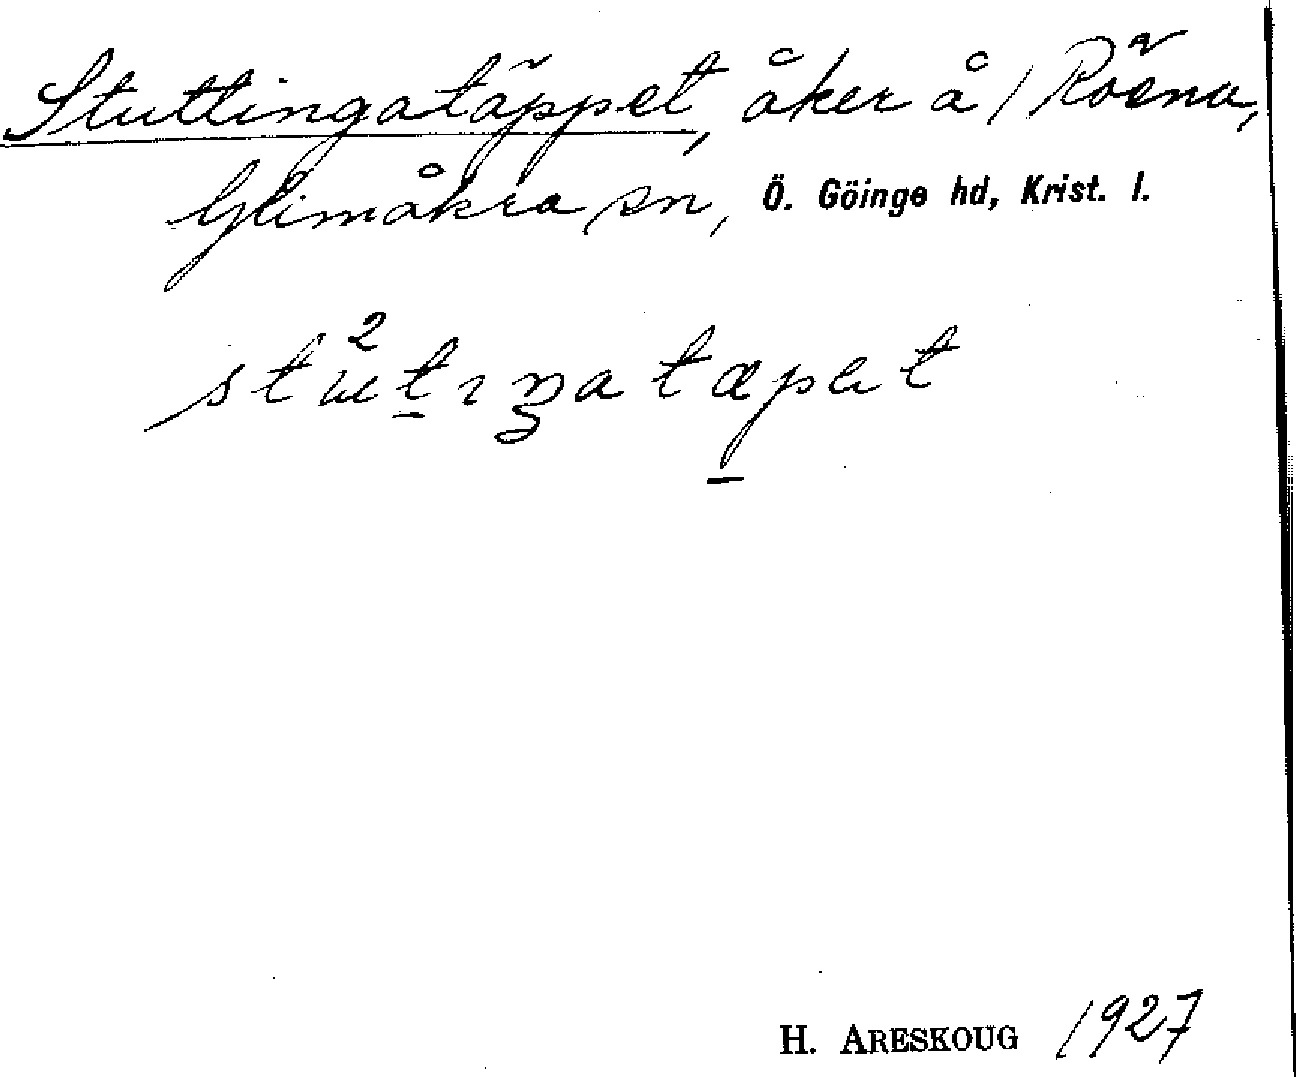 Stuttingatäppet, åker å /Röena,
Glimåkra sn, Ö. Göinge hd, Krist. l.
H. ARESKOUG 1927